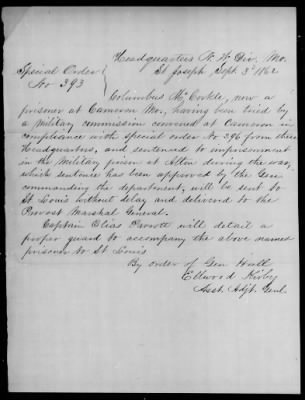 Headquarters N. W. Div. Mo.
St Joseph, Sept. 3d 1862
Special Order
No 393
Columbus McCorkle, now a
prisoner at Cameron Mo., having been tried by
a military commission convened at Cameron in
compliance with special order No. 296 from these
Headquarters, and sentenced to imprisonment
in the Military prison at Alton during the war,
which sentence has been approved by the Gen
commanding the department, will be sent to
St Louis without delay and delivered to the
Provost Marshal General.
Captain Elias Parrott will detail a
proper guard to accompany the above named
prisoner to St Louis
By order of Gen Hall
Ellwood Kirby
Asst. Adjt. Genl.